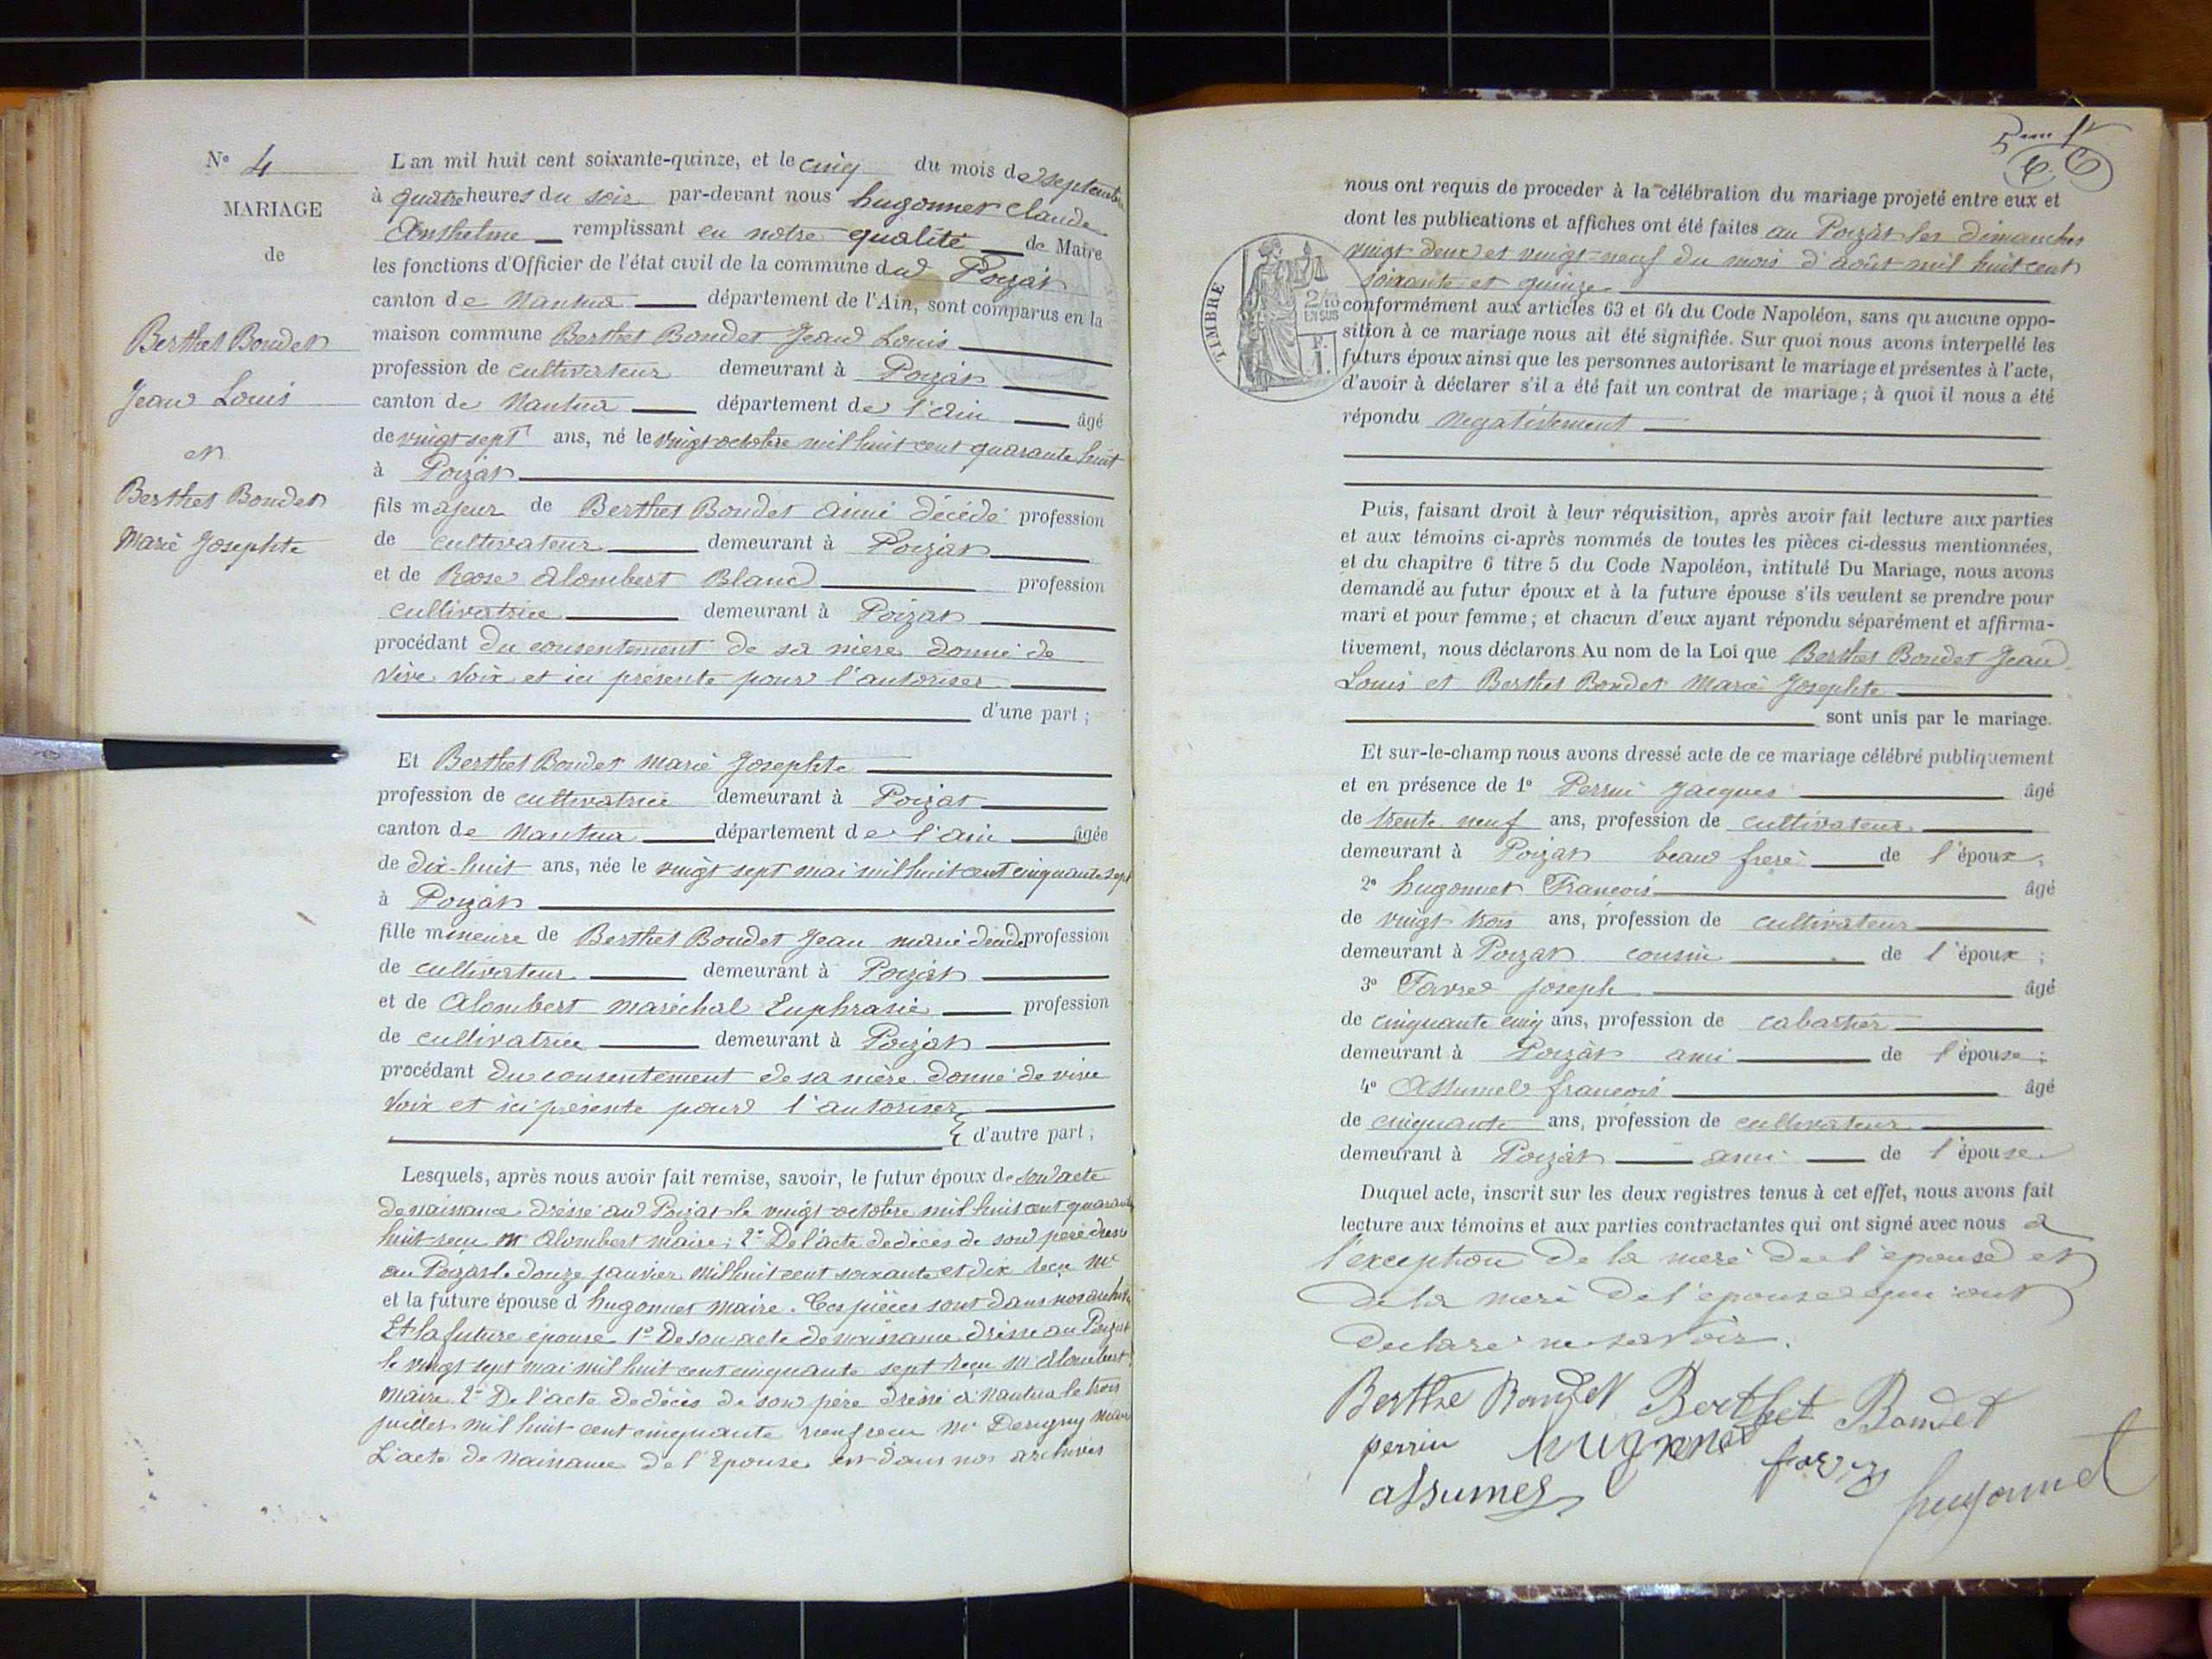 N° 4
MARIAGE
de
Berthet Bondet
Jean Louis
et
Berthet Bondet
Marie Josephte
L'an mil huit cent soixante-quinze, et le cinq du mois de septembre
à quatre heures du soir par-devant nous hugonnet Claude
Anthelme remplissant en notre qualité de Maire
les fonctions d'Officier de l'état civil de la commune du Poizat
canton de Nantua département de l'Ain, sont comparus en la
maison commune Berthet Bondet Jean Louis
profession de cultivateur demeurant à Poizat
canton de Nantua département de l'ain âgé
de vingt sept ans, né le vingt octobre mil huit cent quarante huit
à Poizat
fils majeur de Berthet Bondet aimé décédé profession
de cultivateur demeurant à Poizat
et de Rose Alombert Blanc profession
cultivatrice demeurant à Poizat
procédant du consentement de sa mère donné de
vive voix et ici présente pour l'autoriser
d'une part ;
Et Berthet Bondet Marie Josephte
profession de cultivatrice demeurant à Poizat
canton de Nantua département de l'ain âgée
de dix-huit ans, née le vingt sept mai mil huit cent cinquante sept
à Poizat
fille mineure de Berthet Bondet Jean marie décédé profession
de cultivateur demeurant à Poizat
et de Alombert Maréchal Euphrasie profession
de cultivatrice demeurant à Poizat
procédant du consentement de sa mère donné de vive
voix et ici présente pour l'autoriser
d'autre part ;
Lesquels, après nous avoir fait remise, savoir, le futur époux de son acte
de naissance dressé au Poizat le vingt octobre mil huit cent quarante
huit reçu Mr Alombert maire ; 2° De l'acte de décès de son père dressé
au Poizat le douze janvier mil huit cent soixante et dix reçu Mr
et la future épouse d hugonnet maire. Ces pièces sont dans nos archives
Et la future épouse 1° De son acte de naissance dressé au Poizat
le vingt sept mai mil huit cent cinquante sept reçu Mr Alombert
maire. 2° De l'acte de décès de son père dressé à Nantua le trois
juillet mil huit cent cinquante neuf reçu Mr Derigny maire
L'acte de Naissance de l'Epouse est dans nos archives
5me
TIMBRE
2/10
EN SUS
F.
1.
nous ont requis de procéder à la célébration du mariage projeté entre eux et
dont les publications et affiches ont été faites au Poizat les dimanches
vingt deux et vingt-neuf du mois d'août mil huit cent
soixante et quinze
conformément aux articles 63 et 64 du Code Napoléon, sans qu'aucune oppo-
sition à ce mariage nous ait été signifiée. Sur quoi nous avons interpellé les
futurs époux ainsi que les personnes autorisant le mariage et présentes à l'acte,
d'avoir à déclarer s'il a été fait un contrat de mariage ; à quoi il nous a été
répondu negativement
Puis, faisant droit à leur réquisition, après avoir fait lecture aux parties
et aux témoins ci-après nommés de toutes les pièces ci-dessus mentionnées,
et du chapitre 6 titre 5 du Code Napoléon, intitulé Du Mariage, nous avons
demandé au futur époux et à la future épouse s'ils veulent se prendre pour
mari et pour femme ; et chacun d'eux ayant répondu séparément et affirma-
tivement, nous déclarons Au nom de la Loi que Berthet Bondet Jean
Louis et Berthet Bondet Marie Josephte
sont unis par le mariage.
Et sur-le-champ nous avons dressé acte de ce mariage célébré publiquement
et en présence de 1° Perrin Jacques âgé
de trente neuf ans, profession de cultivateur
demeurant à Poizat beau frere de l'époux ;
2° hugonnet Francois âgé
de vingt trois ans, profession de cultivateur
demeurant à Poizat cousin de l'époux ;
3° Favre Joseph âgé
de cinquante cinq ans, profession de cabartier
demeurant à Poizat ami de l'épouse ;
4° Assumel francois âgé
de cinquante ans, profession de cultivateur
demeurant à Poizat ami de l'épouse
Duquel acte, inscrit sur les deux registres tenus à cet effet, nous avons fait
lecture aux témoins et aux parties contractantes qui ont signé avec nous a
l'exception de la mere de l'epouse et
de la mere de l'epouse qui ont
declare ne savoir.
Berthe Bondet Berthet Bondet
perrin hugonnet
assumel hugonnet